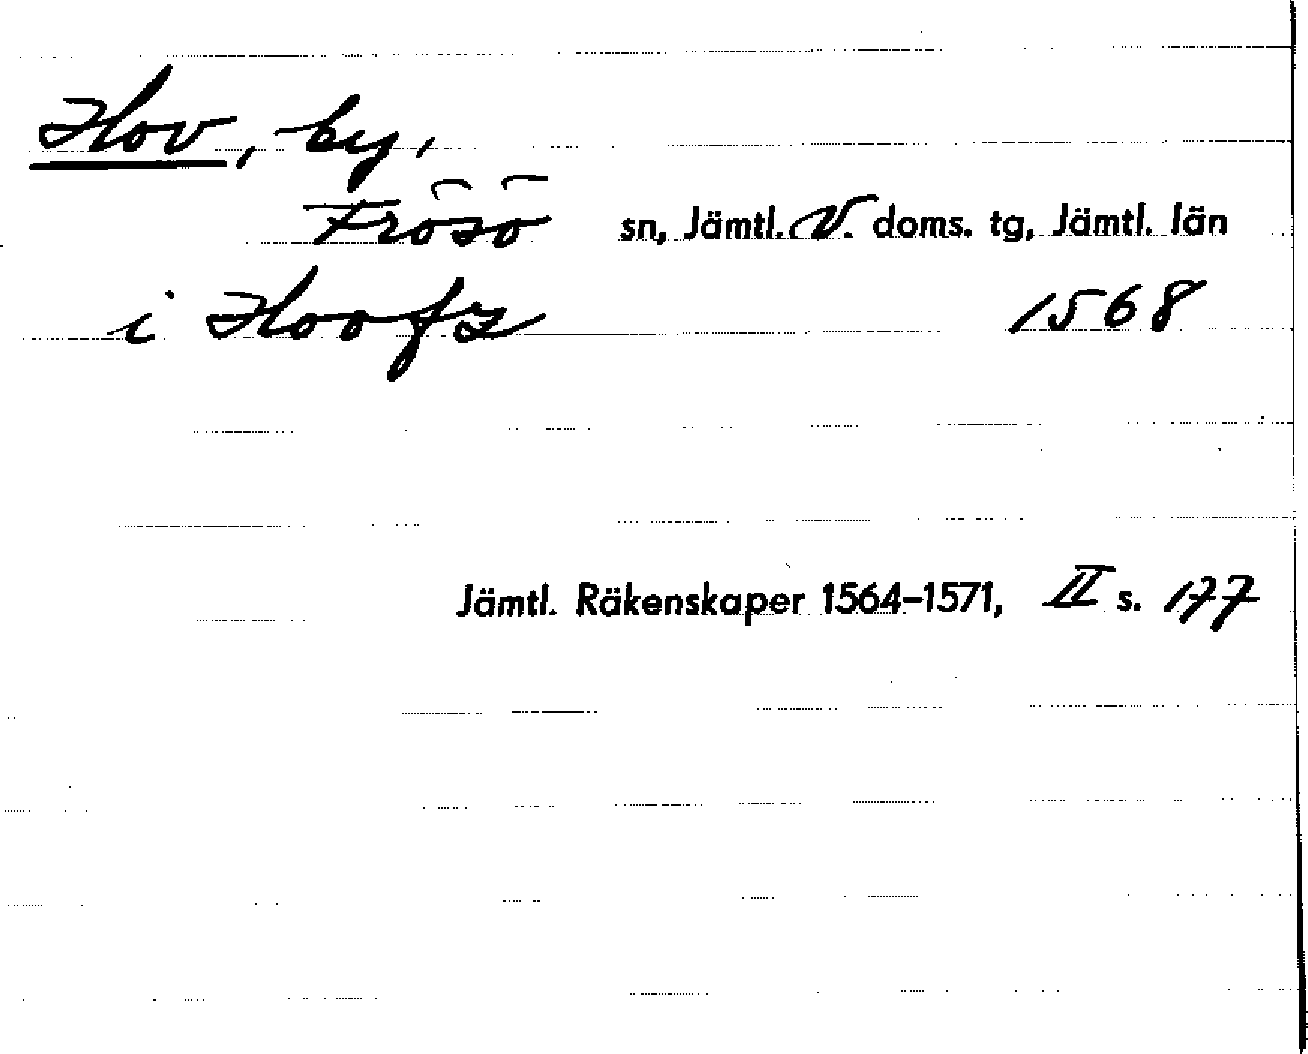 Hov, by,
Frösö sn, Jämtl. V. doms. tg, Jämtl. län
i Hoofz 1568
Jämtl. Räkenskaper 1564-1571, II s. 177